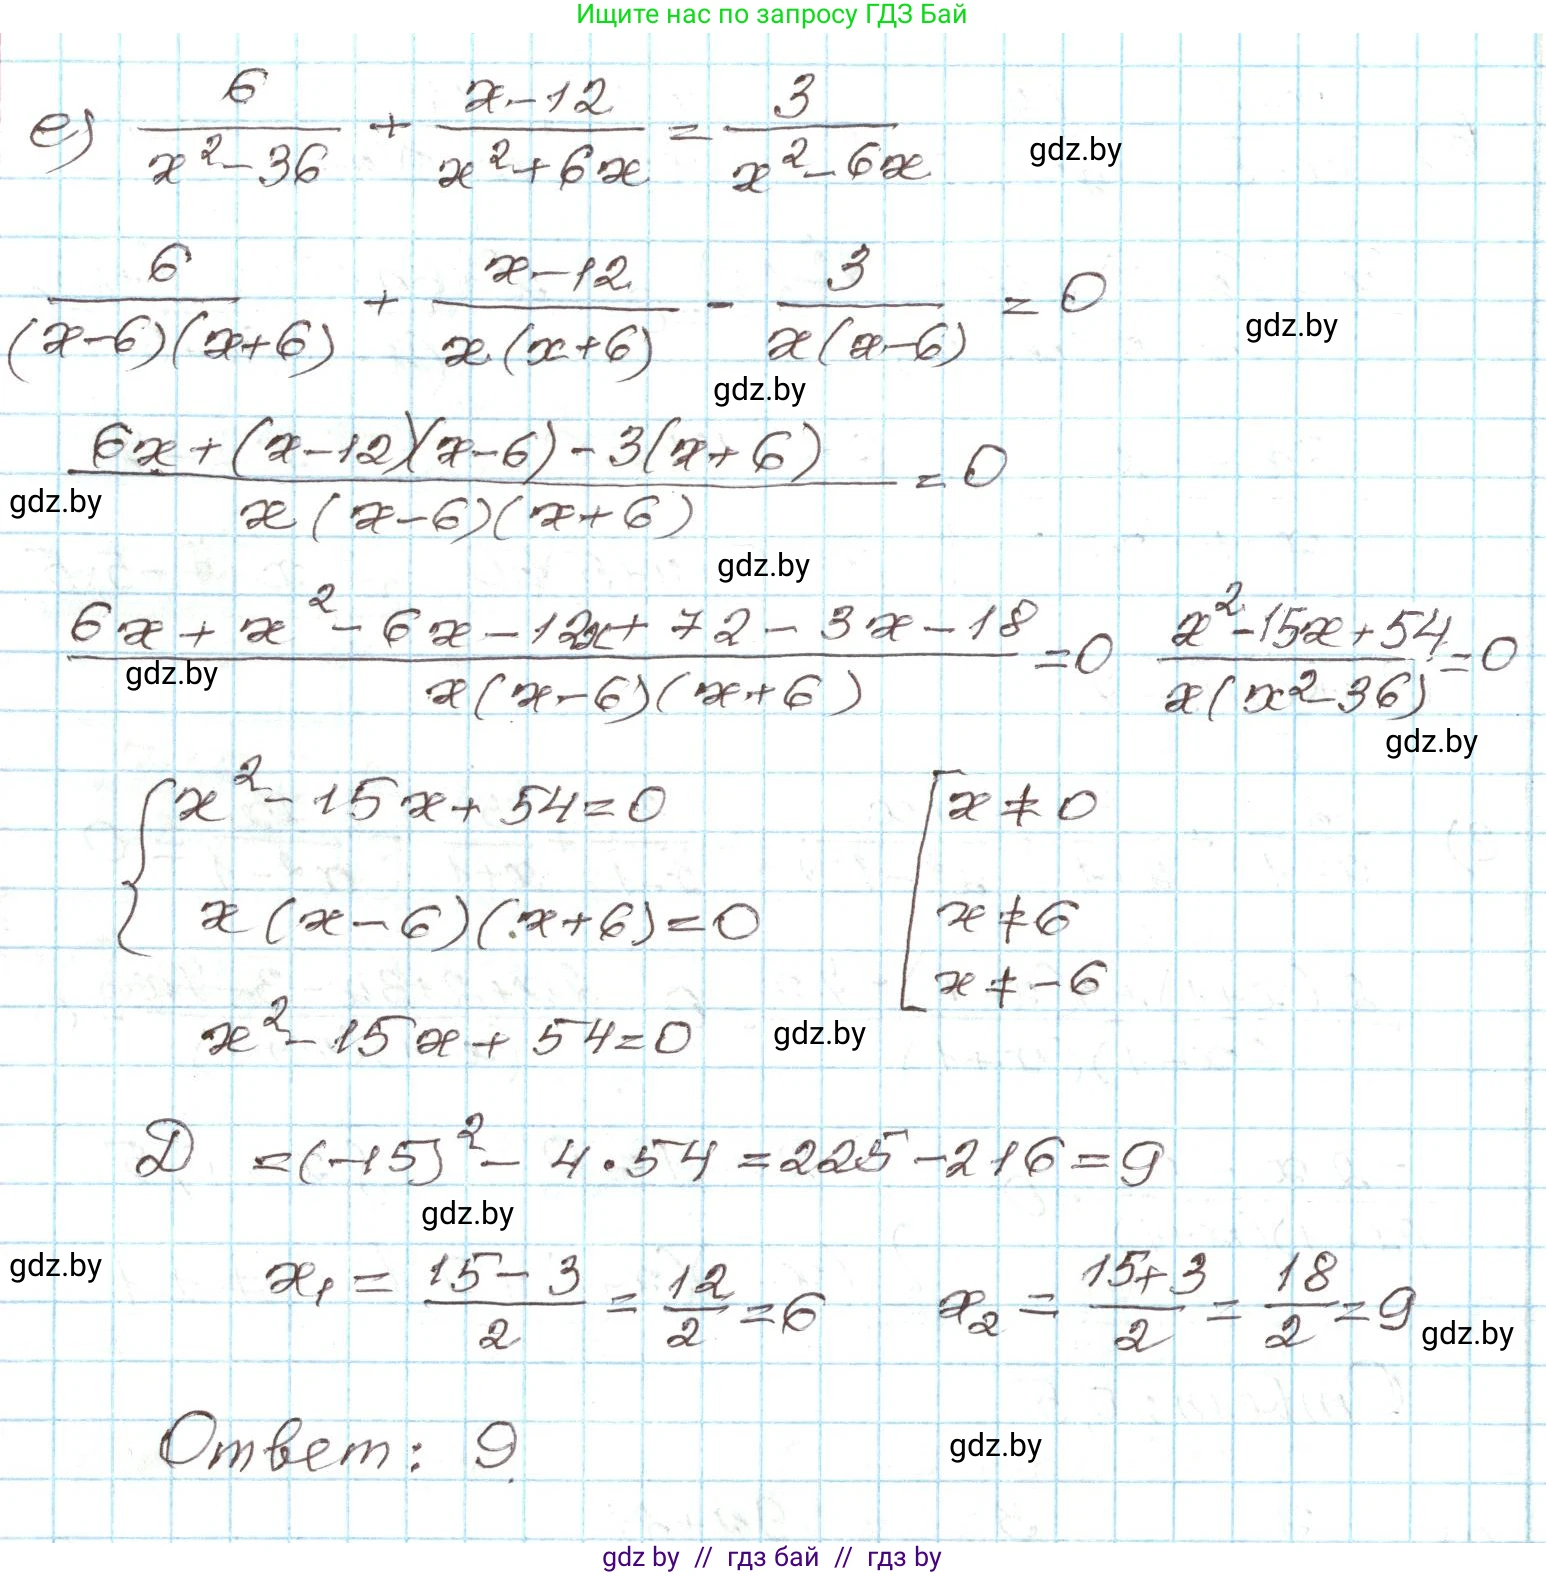 Ищите нас по запросу ГДЗ Бай
е) 6/(x²-36) + (x-12)/(x²+6x) = 3/(x²-6x)
gdz.by
6/((x-6)(x+6)) + (x-12)/(x(x+6)) - 3/(x(x-6)) = 0
gdz.by
gdz.by
(6x+(x-12)(x-6)-3(x+6))/(x(x-6)(x+6)) = 0
gdz.by
gdz.by
(6x+x²-6x-12x+72-3x-18)/(x(x-6)(x+6)) = 0 (x²-15x+54)/(x(x²-36)) = 0
gdz.by
gdz.by
{ x²-15x+54=0 [ x≠0
x(x-6)(x+6)=0 x≠6
x≠-6
x²-15x+54=0 gdz.by
Д =(-15)²-4·54=225-216=9
gdz.by
gdz.by
x₁ = (15-3)/2 = 12/2 = 6 x₂ = (15+3)/2 = 18/2 = 9
gdz.by
Ответ: 9.
gdz.by
gdz by // гдз бай // гдз by